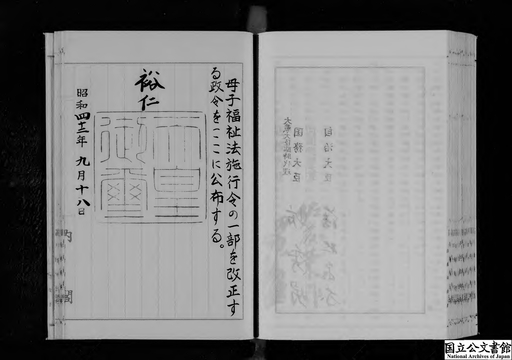 母子福祉法施行令の一部を改正す
る政令をここに公布する。
裕仁
天皇
御璽
昭和四十三年九月十八日
内閣
国立公文書館
National Archives of Japan